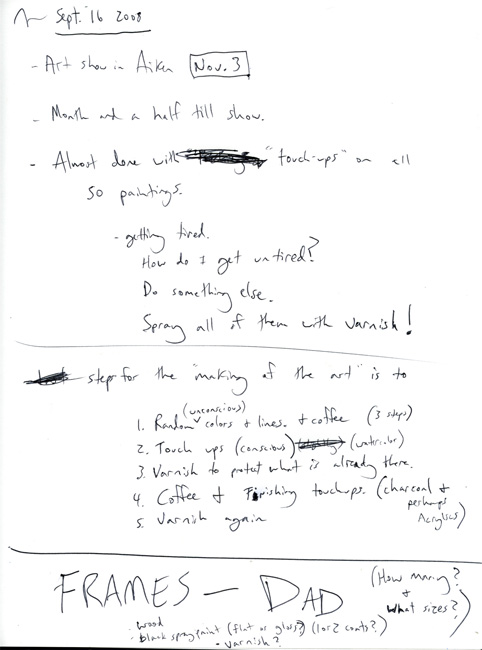 Sept. 16 2008
- Art show in Aiken Nov. 3
- Month and a half till show.
- Almost done with "touch-ups" on all
50 paintings.
- getting tired.
How do I get untired?
Do something else.
Spray all of them with varnish!
steps for the "making of the art" is to
(unconscious)
1. Random colors & lines. & coffee (3 steps)
2. Touch ups (conscious) (watercolor)
3. Varnish to protect what is already there.
4. Coffee & Finishing touchups. (charcoal &
perhaps
Acrylics)
5. Varnish again
FRAMES — DAD
(How many?
& what sizes?)
- wood
- black spray paint (flat or gloss?) (1 or 2 coats?)
- varnish?